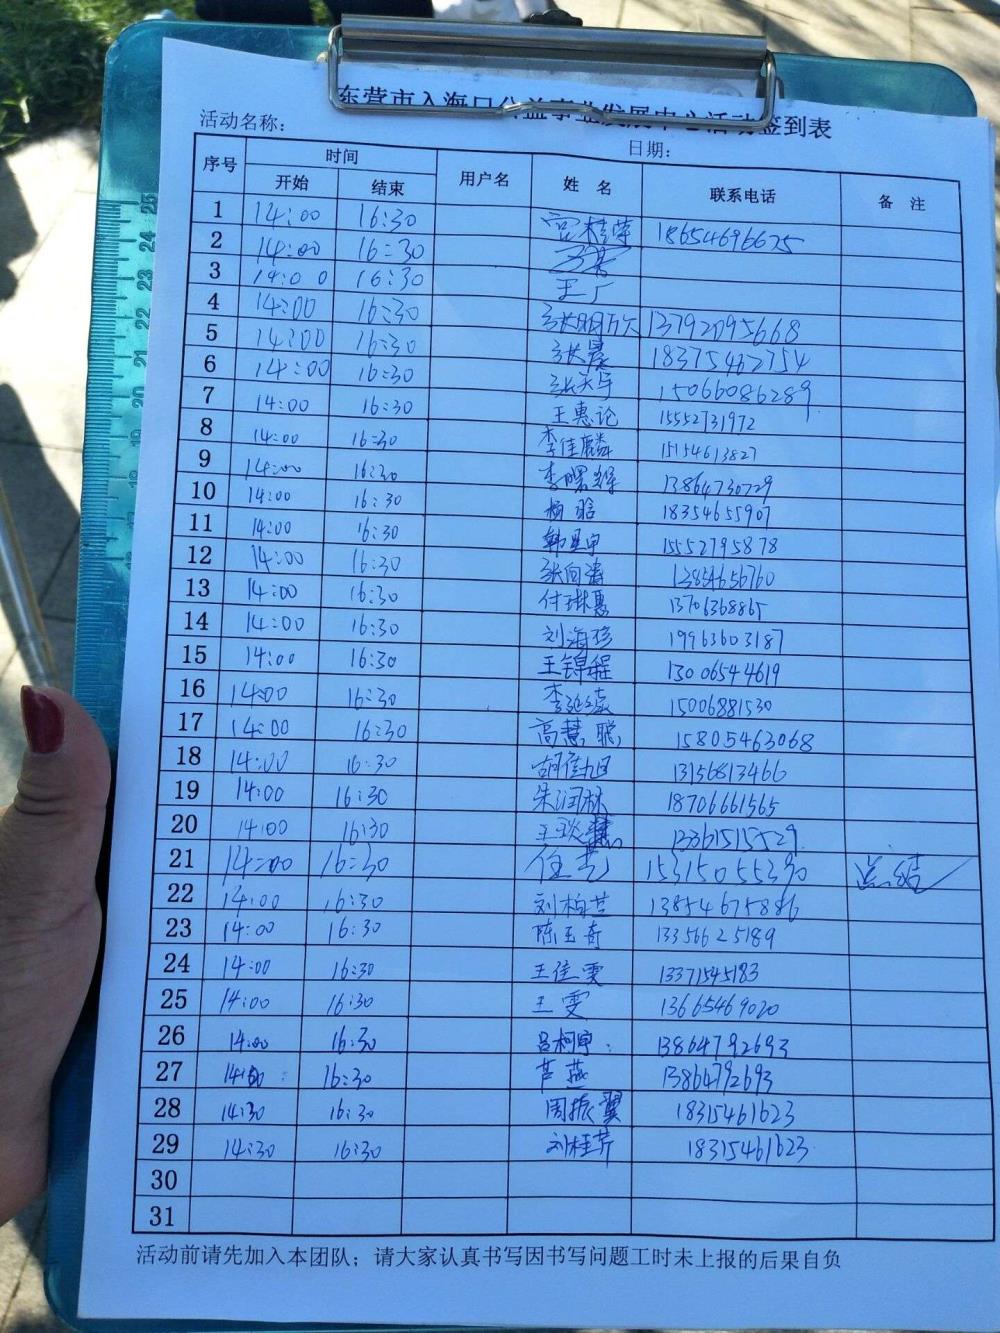 东营市入海口公益事业发展中心活动签到表
活动名称： 日期：
序号 时间 用户名 姓 名 联系电话 备 注
开始 结束
1 14:00 16:30 宫桂荣 18654696625
2 14:00 16:30
3 14:00 16:30 王广
4 14:00 16:30 13792095668
5 14:00 16:30 张晨 18375462754
6 14:00 16:30 张天宇 15066086289
7 14:00 16:30 王惠论 15552731972
8 14:00 16:30 李佳麟 15154613827
9 14:00 16:30 李曙辉 13864730729
10 14:00 16:30 杨晗 18354655907
11 14:00 16:30 15552795878
12 14:00 16:30 张向涛 13854656760
13 14:00 16:30 付琳惠 13706368865
14 14:00 16:30 刘海珍 19963603187
15 14:00 16:30 王锦程 13006544619
16 14:00 16:30 15006881530
17 14:00 16:30 高慧聪 15805463068
18 14:00 16:30 胡佳旭 13156813466
19 14:00 16:30 朱润林 18706661565
20 14:00 16:30 13361515529
21 14:00 16:30 任艺 15315055390 总结
22 14:00 16:30 刘柏芸 13854675886
23 14:00 16:30 陈玉奇 13356625189
24 14:00 16:30 王佳雯 13371545183
25 14:00 16:30 王雯 13665469020
26 14:00 16:30 吕柯宇 13864792693
27 14:00 16:30 芦燕 13864792693
28 14:30 16:30 周振翼 18315461623
29 14:30 16:30 刘桂芹 18315461623
30
31
活动前请先加入本团队；请大家认真书写因书写问题工时未上报的后果自负
25
24
23
22
21
20
19
18
17